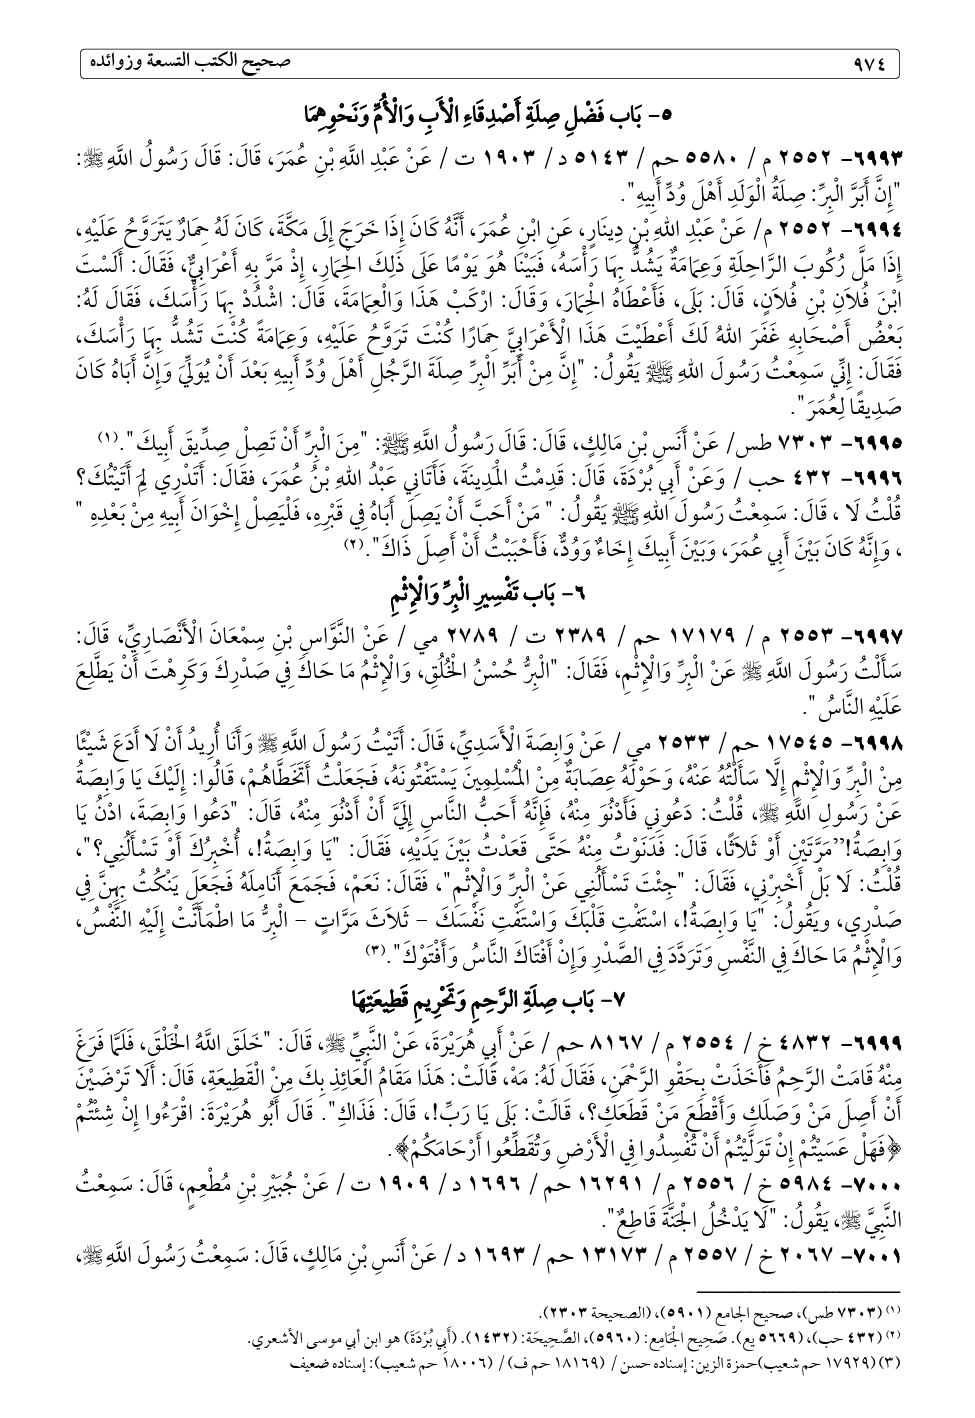 ٩٧٤ صحيح الكتب التسعة وزوائده
٥- بَاب فَضْلِ صِلَةِ أَصْدِقَاءِ الْأَبِ وَالْأُمِّ وَنَحْوِهِمَا
٦٩٩٣- ٢٥٥٢ م/ ٥٥٨٠ حم/ ٥١٤٣ د/ ١٩٠٣ ت / عَنْ عَبْدِ اللَّهِ بْنِ عُمَرَ، قَالَ: قَالَ رَسُولُ اللَّهِ ﷺ:
"إِنَّ أَبَرَّ الْبِرِّ: صِلَةُ الْوَلَدِ أَهْلَ وُدِّ أَبِيهِ".
٦٩٩٤- ٢٥٥٢ م/ عَنْ عَبْدِ اللهِ بْنِ دِينَارٍ، عَنِ ابْنِ عُمَرَ، أَنَّهُ كَانَ إِذَا خَرَجَ إِلَى مَكَّةَ، كَانَ لَهُ حِمَارٌ يَتَرَوَّحُ عَلَيْهِ،
إِذَا مَلَّ رُكُوبَ الرَّاحِلَةِ وَعِمَامَةٌ يَشُدُّ بِهَا رَأْسَهُ، فَبَيْنَا هُوَ يَوْمًا عَلَى ذَلِكَ الْحِمَارِ، إِذْ مَرَّ بِهِ أَعْرَابِيٌّ، فَقَالَ: أَلَسْتَ
ابْنَ فُلَانِ بْنِ فُلَانٍ، قَالَ: بَلَى، فَأَعْطَاهُ الْحِمَارَ، وَقَالَ: ارْكَبْ هَذَا وَالْعِمَامَةَ، قَالَ: اشْدُدْ بِهَا رَأْسَكَ، فَقَالَ لَهُ:
بَعْضُ أَصْحَابِهِ غَفَرَ اللهُ لَكَ أَعْطَيْتَ هَذَا الْأَعْرَابِيَّ حِمَارًا كُنْتَ تَرَوَّحُ عَلَيْهِ، وَعِمَامَةً كُنْتَ تَشُدُّ بِهَا رَأْسَكَ،
فَقَالَ: إِنِّي سَمِعْتُ رَسُولَ اللهِ ﷺ يَقُولُ: "إِنَّ مِنْ أَبَرِّ الْبِرِّ صِلَةَ الرَّجُلِ أَهْلَ وُدِّ أَبِيهِ بَعْدَ أَنْ يُوَلِّيَ وَإِنَّ أَبَاهُ كَانَ
صَدِيقًا لِعُمَرَ".
٦٩٩٥- ٧٣٠٣ طس/ عَنْ أَنَسِ بْنِ مَالِكٍ، قَالَ: قَالَ رَسُولُ اللَّهِ ﷺ: "مِنَ الْبِرِّ أَنْ تَصِلَ صِدِّيقَ أَبِيكَ".(١)
٦٩٩٦- ٤٣٢ حب / وَعَنْ أَبِي بُرْدَةَ، قَالَ: قَدِمْتُ الْمَدِينَةَ، فَأَتَانِي عَبْدُ اللهِ بْنُ عُمَرَ، فَقَالَ: أَتَدْرِي لِمَ أَتَيْتُكَ؟
قُلْتُ لَا ، قَالَ: سَمِعْتُ رَسُولَ اللهِ ﷺ يَقُولُ: " مَنْ أَحَبَّ أَنْ يَصِلَ أَبَاهُ فِي قَبْرِهِ، فَلْيَصِلْ إِخْوَانَ أَبِيهِ مِنْ بَعْدِهِ "
، وَإِنَّهُ كَانَ بَيْنَ أَبِي عُمَرَ، وَبَيْنَ أَبِيكَ إِخَاءٌ وَوُدٌّ، فَأَحْبَبْتُ أَنْ أَصِلَ ذَاكَ".(٢)
٦- بَاب تَفْسِيرِ الْبِرِّ وَالْإِثْمِ
٦٩٩٧- ٢٥٥٣ م / ١٧١٧٩ حم / ٢٣٨٩ ت / ٢٧٨٩ مي / عَنْ النَّوَّاسِ بْنِ سِمْعَانَ الْأَنْصَارِيِّ، قَالَ:
سَأَلْتُ رَسُولَ اللَّهِ ﷺ عَنْ الْبِرِّ وَالْإِثْمِ، فَقَالَ: "الْبِرُّ حُسْنُ الْخُلُقِ، وَالْإِثْمُ مَا حَاكَ فِي صَدْرِكَ وَكَرِهْتَ أَنْ يَطَّلِعَ
عَلَيْهِ النَّاسُ ".
٦٩٩٨- ١٧٥٤٥ حم/ ٢٥٣٣ مي/ عَنْ وَابِصَةَ الْأَسَدِيِّ، قَالَ: أَتَيْتُ رَسُولَ اللَّهِ ﷺ وَأَنَا أُرِيدُ أَنْ لَا أَدَعَ شَيْئًا
مِنْ الْبِرِّ وَالْإِثْمِ إِلَّا سَأَلْتُهُ عَنْهُ، وَحَوْلَهُ عِصَابَةٌ مِنْ الْمُسْلِمِينَ يَسْتَفْتُونَهُ، فَجَعَلْتُ أَتَخَطَّاهُمْ، قَالُوا: إِلَيْكَ يَا وَابِصَةُ
عَنْ رَسُولِ اللَّهِ ﷺ، قُلْتُ: دَعُونِي فَأَدْنُوَ مِنْهُ، فَإِنَّهُ أَحَبُّ النَّاسِ إِلَيَّ أَنْ أَدْنُوَ مِنْهُ، قَالَ: "دَعُوا وَابِصَةَ، ادْنُ يَا
وَابِصَةُ!”مَرَّتَيْنِ أَوْ ثَلَاثًا، قَالَ: فَدَنَوْتُ مِنْهُ حَتَّى قَعَدْتُ بَيْنَ يَدَيْهِ، فَقَالَ: "يَا وَابِصَةُ!، أُخْبِرُكَ أَوْ تَسْأَلُنِي؟"،
قُلْتُ: لَا بَلْ أَخْبِرْنِي، فَقَالَ: "جِئْتَ تَسْأَلُنِي عَنْ الْبِرِّ وَالْإِثْمِ"، فَقَالَ: نَعَمْ، فَجَمَعَ أَنَامِلَهُ فَجَعَلَ يَنْكُتُ بِهِنَّ فِي
صَدْرِي، ويَقُولُ: "يَا وَابِصَةُ!، اسْتَفْتِ قَلْبَكَ وَاسْتَفْتِ نَفْسَكَ – ثَلَاثَ مَرَّاتٍ – الْبِرُّ مَا اطْمَأَنَّتْ إِلَيْهِ النَّفْسُ،
وَالْإِثْمُ مَا حَاكَ فِي النَّفْسِ وَتَرَدَّدَ فِي الصَّدْرِ وَإِنْ أَفْتَاكَ النَّاسُ وَأَفْتَوْكَ".(٣)
٧- بَاب صِلَةِ الرَّحِمِ وَتَحْرِيمِ قَطِيعَتِهَا
٦٩٩٩- ٤٨٣٢ خ/ ٢٥٥٤ م/ ٨١٦٧ حم / عَنْ أَبِي هُرَيْرَةَ، عَنْ النَّبِيِّ ﷺ، قَالَ: "خَلَقَ اللَّهُ الْخَلْقَ، فَلَمَّا فَرَغَ
مِنْهُ قَامَتْ الرَّحِمُ فَأَخَذَتْ بِحَقْوِ الرَّحْمَنِ، فَقَالَ لَهُ: مَهْ، قَالَتْ: هَذَا مَقَامُ الْعَائِذِ بِكَ مِنْ الْقَطِيعَةِ، قَالَ: أَلَا تَرْضَيْنَ
أَنْ أَصِلَ مَنْ وَصَلَكِ وَأَقْطَعَ مَنْ قَطَعَكِ؟، قَالَتْ: بَلَى يَا رَبِّ!، قَالَ: فَذَاكِ". قَالَ أَبُو هُرَيْرَةَ: اقْرَءُوا إِنْ شِئْتُمْ
﴿فَهَلْ عَسَيْتُمْ إِنْ تَوَلَّيْتُمْ أَنْ تُفْسِدُوا فِي الْأَرْضِ وَتُقَطِّعُوا أَرْحَامَكُمْ﴾.
٧٠٠٠- ٥٩٨٤ خ/ ٢٥٥٦ م/ ١٦٢٩١ حم/ ١٦٩٦ د/ ١٩٠٩ ت/ عَنْ جُبَيْرِ بْنِ مُطْعِمٍ، قَالَ: سَمِعْتُ
النَّبِيَّ ﷺ، يَقُولُ: "لَا يَدْخُلُ الْجَنَّةَ قَاطِعٌ".
٧٠٠١- ٢٠٦٧ خ/ ٢٥٥٧ م/ ١٣١٧٣ حم/ ١٦٩٣ د/ عَنْ أَنَسِ بْنِ مَالِكٍ، قَالَ: سَمِعْتُ رَسُولَ اللَّهِ ﷺ،
(١) (٧٣٠٣ طس)، صحيح الجامع (٥٩٠١)، (الصحيحة ٢٣٠٣).
(٢) (٤٣٢ حب)، (٥٦٦٩ يع). صَحِيح الْجَامِع: (٥٩٦٠)، الصَّحِيحَة: (١٤٣٢). (أَبِي بُرْدَةَ) هو ابن أبي موسى الأشعري.
(٣) (١٧٩٢٩ حم شعيب)حمزة الزين: إسناده حسن / (١٨١٦٩ حم ف)/ (١٨٠٠٦ حم شعيب): إسناده ضعيف